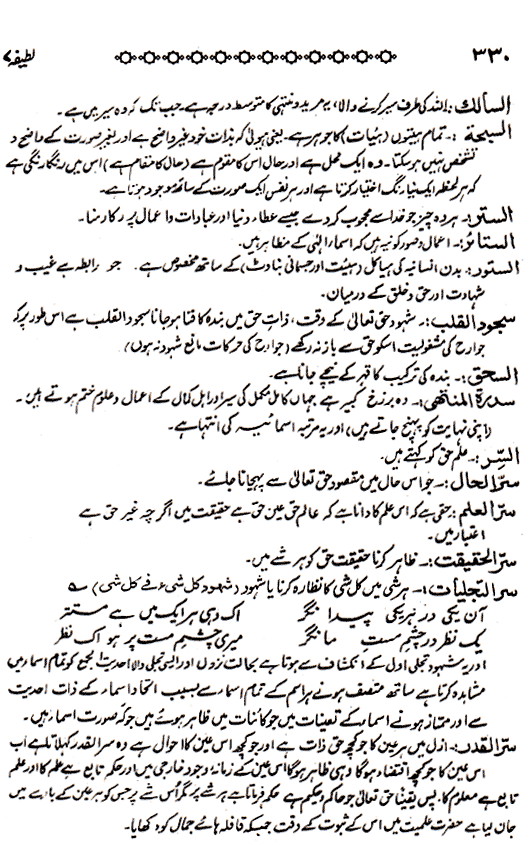 ۳۳۰ لطیفہ ۷
السالک :۔ اللہ کی طرف سیر کرنے والا، یہ مرید و منتہی کا متوسط درجہ ہے۔ جب تک کہ وہ سیر میں ہے۔
السبحة :۔ تمام ہیئتوں (ہیئات) کا جوہر ہے۔ یعنی ہیولی کہ بذات خود غیر واضح ہے اور بغیر صورت کے واضح و
مشخص نہیں ہو سکتا۔ وہ ایک محل ہے اور حال اس کا مقوم ہے (حال کا مقام ہے) اس میں رنگا رنگی ہے
کہ ہر لحظہ ایک نیا رنگ اختیار کرتا ہے اور ہر نفس ایک صورت کے ساتھ وجود ہوتا ہے۔
الستر:۔ ہر وہ چیز جو خدا سے محجوب کر دے جیسے عطاء دنیا اور عبادات و اعمال پر رکا رہنا۔
الستائر:۔ اعمال و صور کونیہ ہیں کہ اسماء الٰہی کے مظاہر ہیں۔
الستور:۔ بدن انسانیہ کی ہیاکل (ہیئت اور جسمانی بناوٹ) کے ساتھ مخصوص ہے۔ جو رابطہ ہے غیب و
شہادت اور حق و خلق کے درمیان۔
سجود القلب:۔ شہود حق تعالیٰ کے وقت، ذات حق میں بندہ کا فنا ہو جانا سجود القلب ہے اس طور پر کہ
جوارح کی مشغولیت اس کو حق سے باز نہ رکھے (جوارح کی حرکات مانع شہود نہ ہوں)
السحق:۔ بندہ کی ترکیب کا قہر کے نیچے جانا ہے۔
سدرة المنتهی:۔ وہ برزخ کبیر ہے جہاں کامل مکمل کی سیر اور اہل کمال کے اعمال و علوم ختم ہوتے ہیں۔
(اپنی نہایت کو پہنچ جاتے ہیں) اور یہ مرتبہ اسمائیہ کی انتہا ہے۔
السِّر:۔ علم حق کو کہتے ہیں۔
سرّ الحال:۔ جو اس حال میں مقصود حق تعالیٰ سے پہچانا جائے۔
سرّ العلم:۔ حقی ہے کہ اس علم کا دانا ہے کہ عالم حق عین حق ہے حقیقت میں اگرچہ غیر حق ہے
اعتبار میں۔
سرّ الحقیقت:۔ ظاہر کرنا حقیقت حق کو ہر شے میں۔
سرّ التجلیات:۔ ہر شی میں کل شی کا نظارہ کرنا یا شہود (شہود کل شیء فی کل شی) ؎
آں یکی در ہر یکی پیدا نگر اک وہی ہر ایک میں ہے مستتر
یک نظر در چشم مست ما نگر میری چشم مست پر ہو اک نظر
اور یہ شہود تجلی اول کے انکشاف سے ہوتا ہے بحالت نزول اور ایسی تجلی والا احدیت الجمع کو تمام اسماء میں
مشاہدہ کرتا ہے ساتھ متصف ہونے ہر اسم کے تمام اسماء سے بسبب اتحاد اسماء کے ذات احدیت
سے اور ممتاز ہونے اسماء کے تعینات میں جو کائنات میں ظاہر ہوئے ہیں جو کہ صورت اسماء ہیں۔
سرّ القدر:۔ ازل میں ہر عین کا جو کچھ حق ذات ہے اور جو کچھ اس عین کا احوال ہے وہ سر القدر کہلاتا ہے اب
اس عین کا جو کچھ اقتضاء ہوگا وہی ظاہر ہوگا اس عین کے زمانہ وجود خارجی میں اور حکم تابع ہے علم کا اور علم
تابع ہے معلوم کا۔ پس یقیناً حق تعالیٰ جو حاکم و حکیم ہے حکم فرماتا ہے ہر شے پر مگر اس شے پر جس کو ہر عین کے بارے میں
جان لیا ہے حضرت علمیت میں اس کے ثبوت کے وقت جبکہ قافلہ ہائے جمال کو دکھایا۔